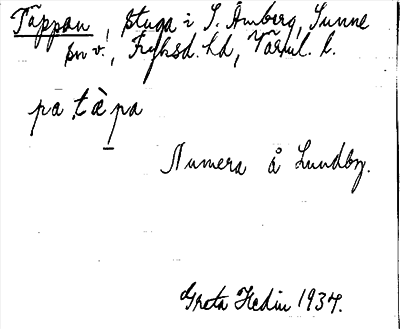 Täppan, stuga i S. Åmberg, Sunne
sn v., Fryksd. hd, Värml. l.
pa tä̀pa
Numera å Lundby.
Greta Hedin 1937.